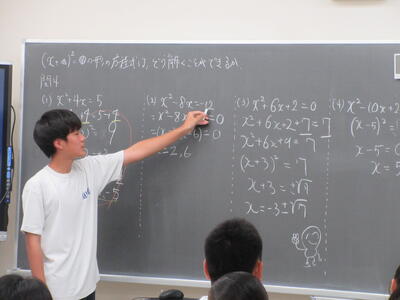 (x+▲)²=●の形の方程式は、どう解くことができるか。
問4
(1) x²+4x=5
(2) x²-8x=-12
=x²-8x
=0
=(x
-6)=0
=2,6
(3) x²+6x+2=0
x²+6x+2+7=7
x²+6x+9=7
(x+3)²=7
x+3=±√7
x=-3±√7
(4) x²-10x+2
(x-5)²
x-5=
x=5